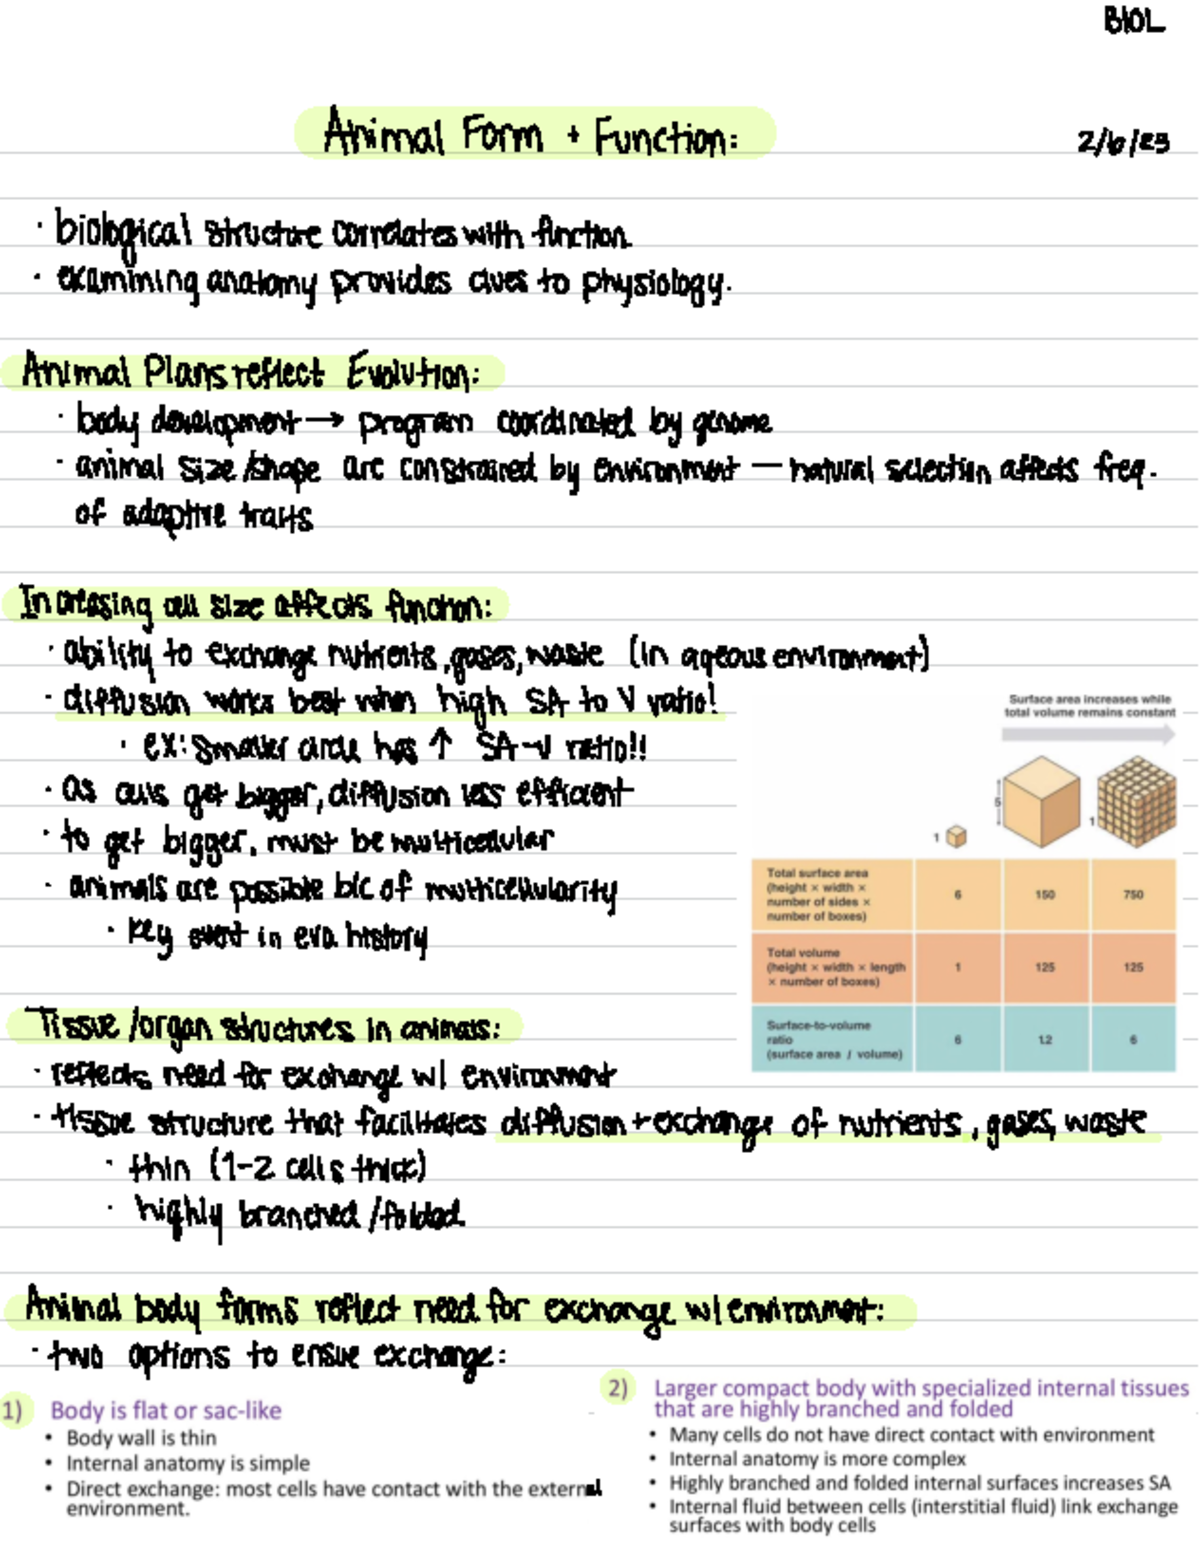 BIOL
Animal Form + Function:
2/6/23
· biological structure correlates with function.
· examining anatomy provides clues to physiology.
Animal Plans reflect Evolution:
· body development → program coordinated by genome
· animal size/shape are constrained by environment — natural selection affects freq.
of adaptive traits
Increasing cell size affects function:
· ability to exchange nutrients, gases, waste (in aqeous environment)
· diffusion works best when high SA to V ratio!
· ex: Smaller circle has ↑ SA-V ratio!!
· as cells get bigger, diffusion less efficient
· to get bigger, must be multicellular
· animals are possible b/c of multicellularity
· key event in evo. history
Surface area increases while
total volume remains constant
1
5
1
Total surface area
(height × width ×
number of sides ×
number of boxes)
6 150 750
Total volume
(height × width × length
× number of boxes)
1 125 125
Surface-to-volume
ratio
(surface area / volume)
6 1.2 6
Tissue/organ structures in animals:
· reflects need for exchange w/ environment
· tissue structure that facilitates diffusion + exchange of nutrients, gases, waste
· thin (1-2 cells thick)
· highly branched/folded
Animal body forms reflect need for exchange w/ environment:
· two options to ensure exchange:
1) Body is flat or sac-like
• Body wall is thin
• Internal anatomy is simple
• Direct exchange: most cells have contact with the external
environment.
2) Larger compact body with specialized internal tissues
that are highly branched and folded
• Many cells do not have direct contact with environment
• Internal anatomy is more complex
• Highly branched and folded internal surfaces increases SA
• Internal fluid between cells (interstitial fluid) link exchange
surfaces with body cells